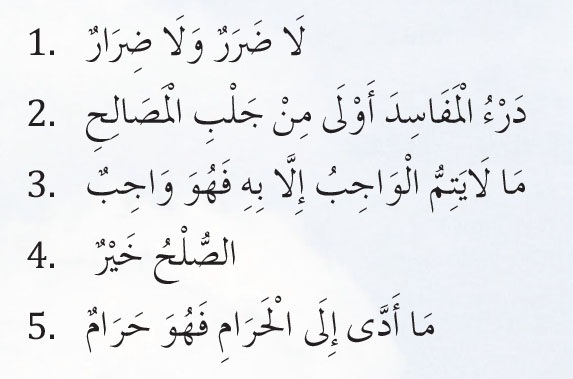 1. لَا ضَرَرٌ وَلَا ضِرَارٌ
2. دَرْءُ الْمَفَاسِدَ أَوْلَى مِنْ جَلْبِ الْمَصَالِحِ
3. مَا لَايَتِمُّ الْوَاجِبُ إِلَّا بِهِ فَهُوَ وَاجِبٌ
4. الصُّلْحُ خَيْرٌ
5. مَا أَدَّى إِلَى الْحَرَامِ فَهُوَ حَرَامٌ